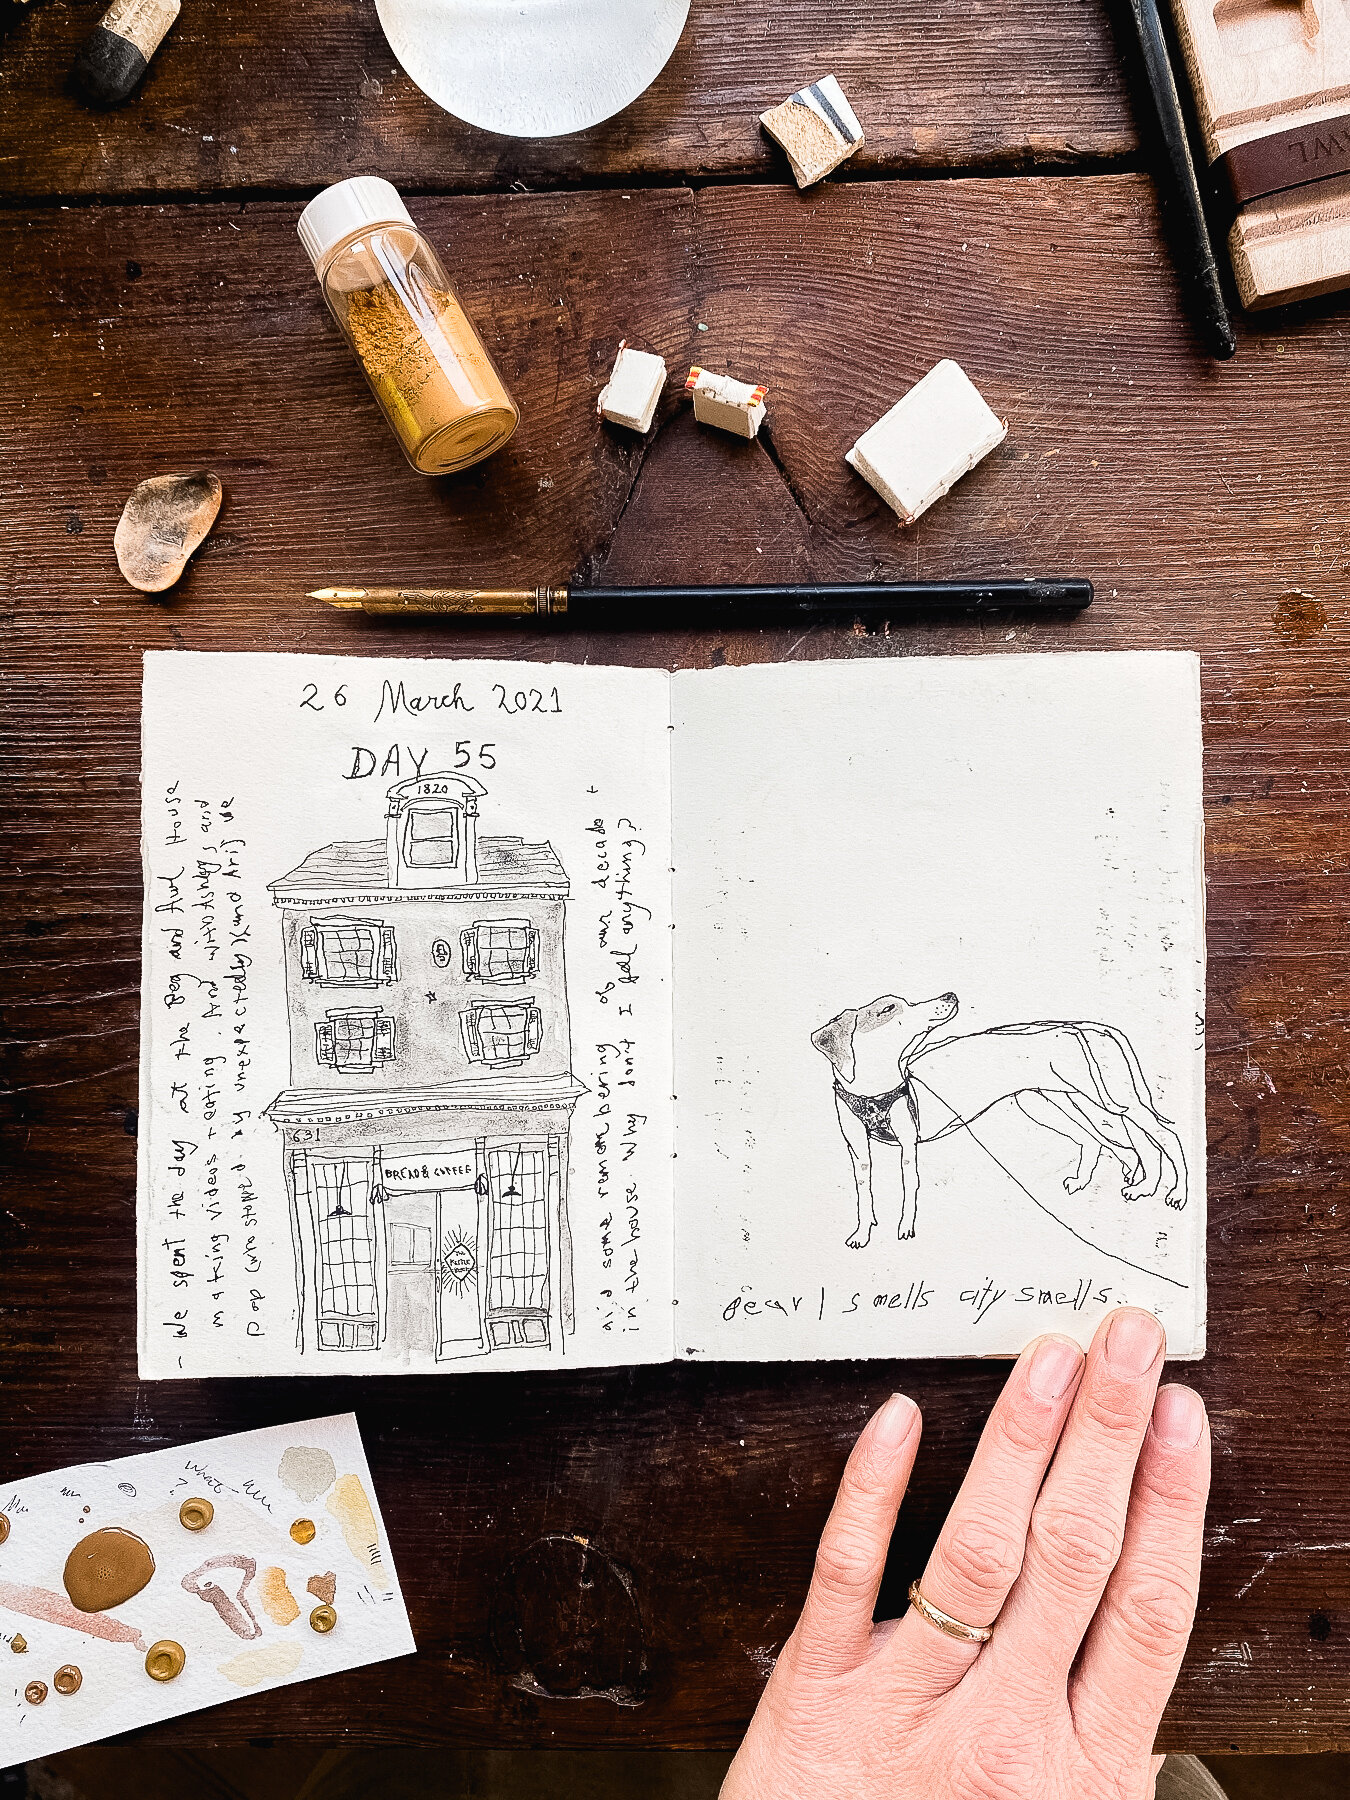 AWL
26 March 2021
DAY 55
1820
- We spent the day at the Peg and Awl House
making videos + eating. And with Ashley, and
Pop (who stayed by unexpectedly) (and Ari) we
did some remembering of our decade +
in the house. Why don't I feel anything?
631
BREAD & COFFEE
pearl smells city smells.
what